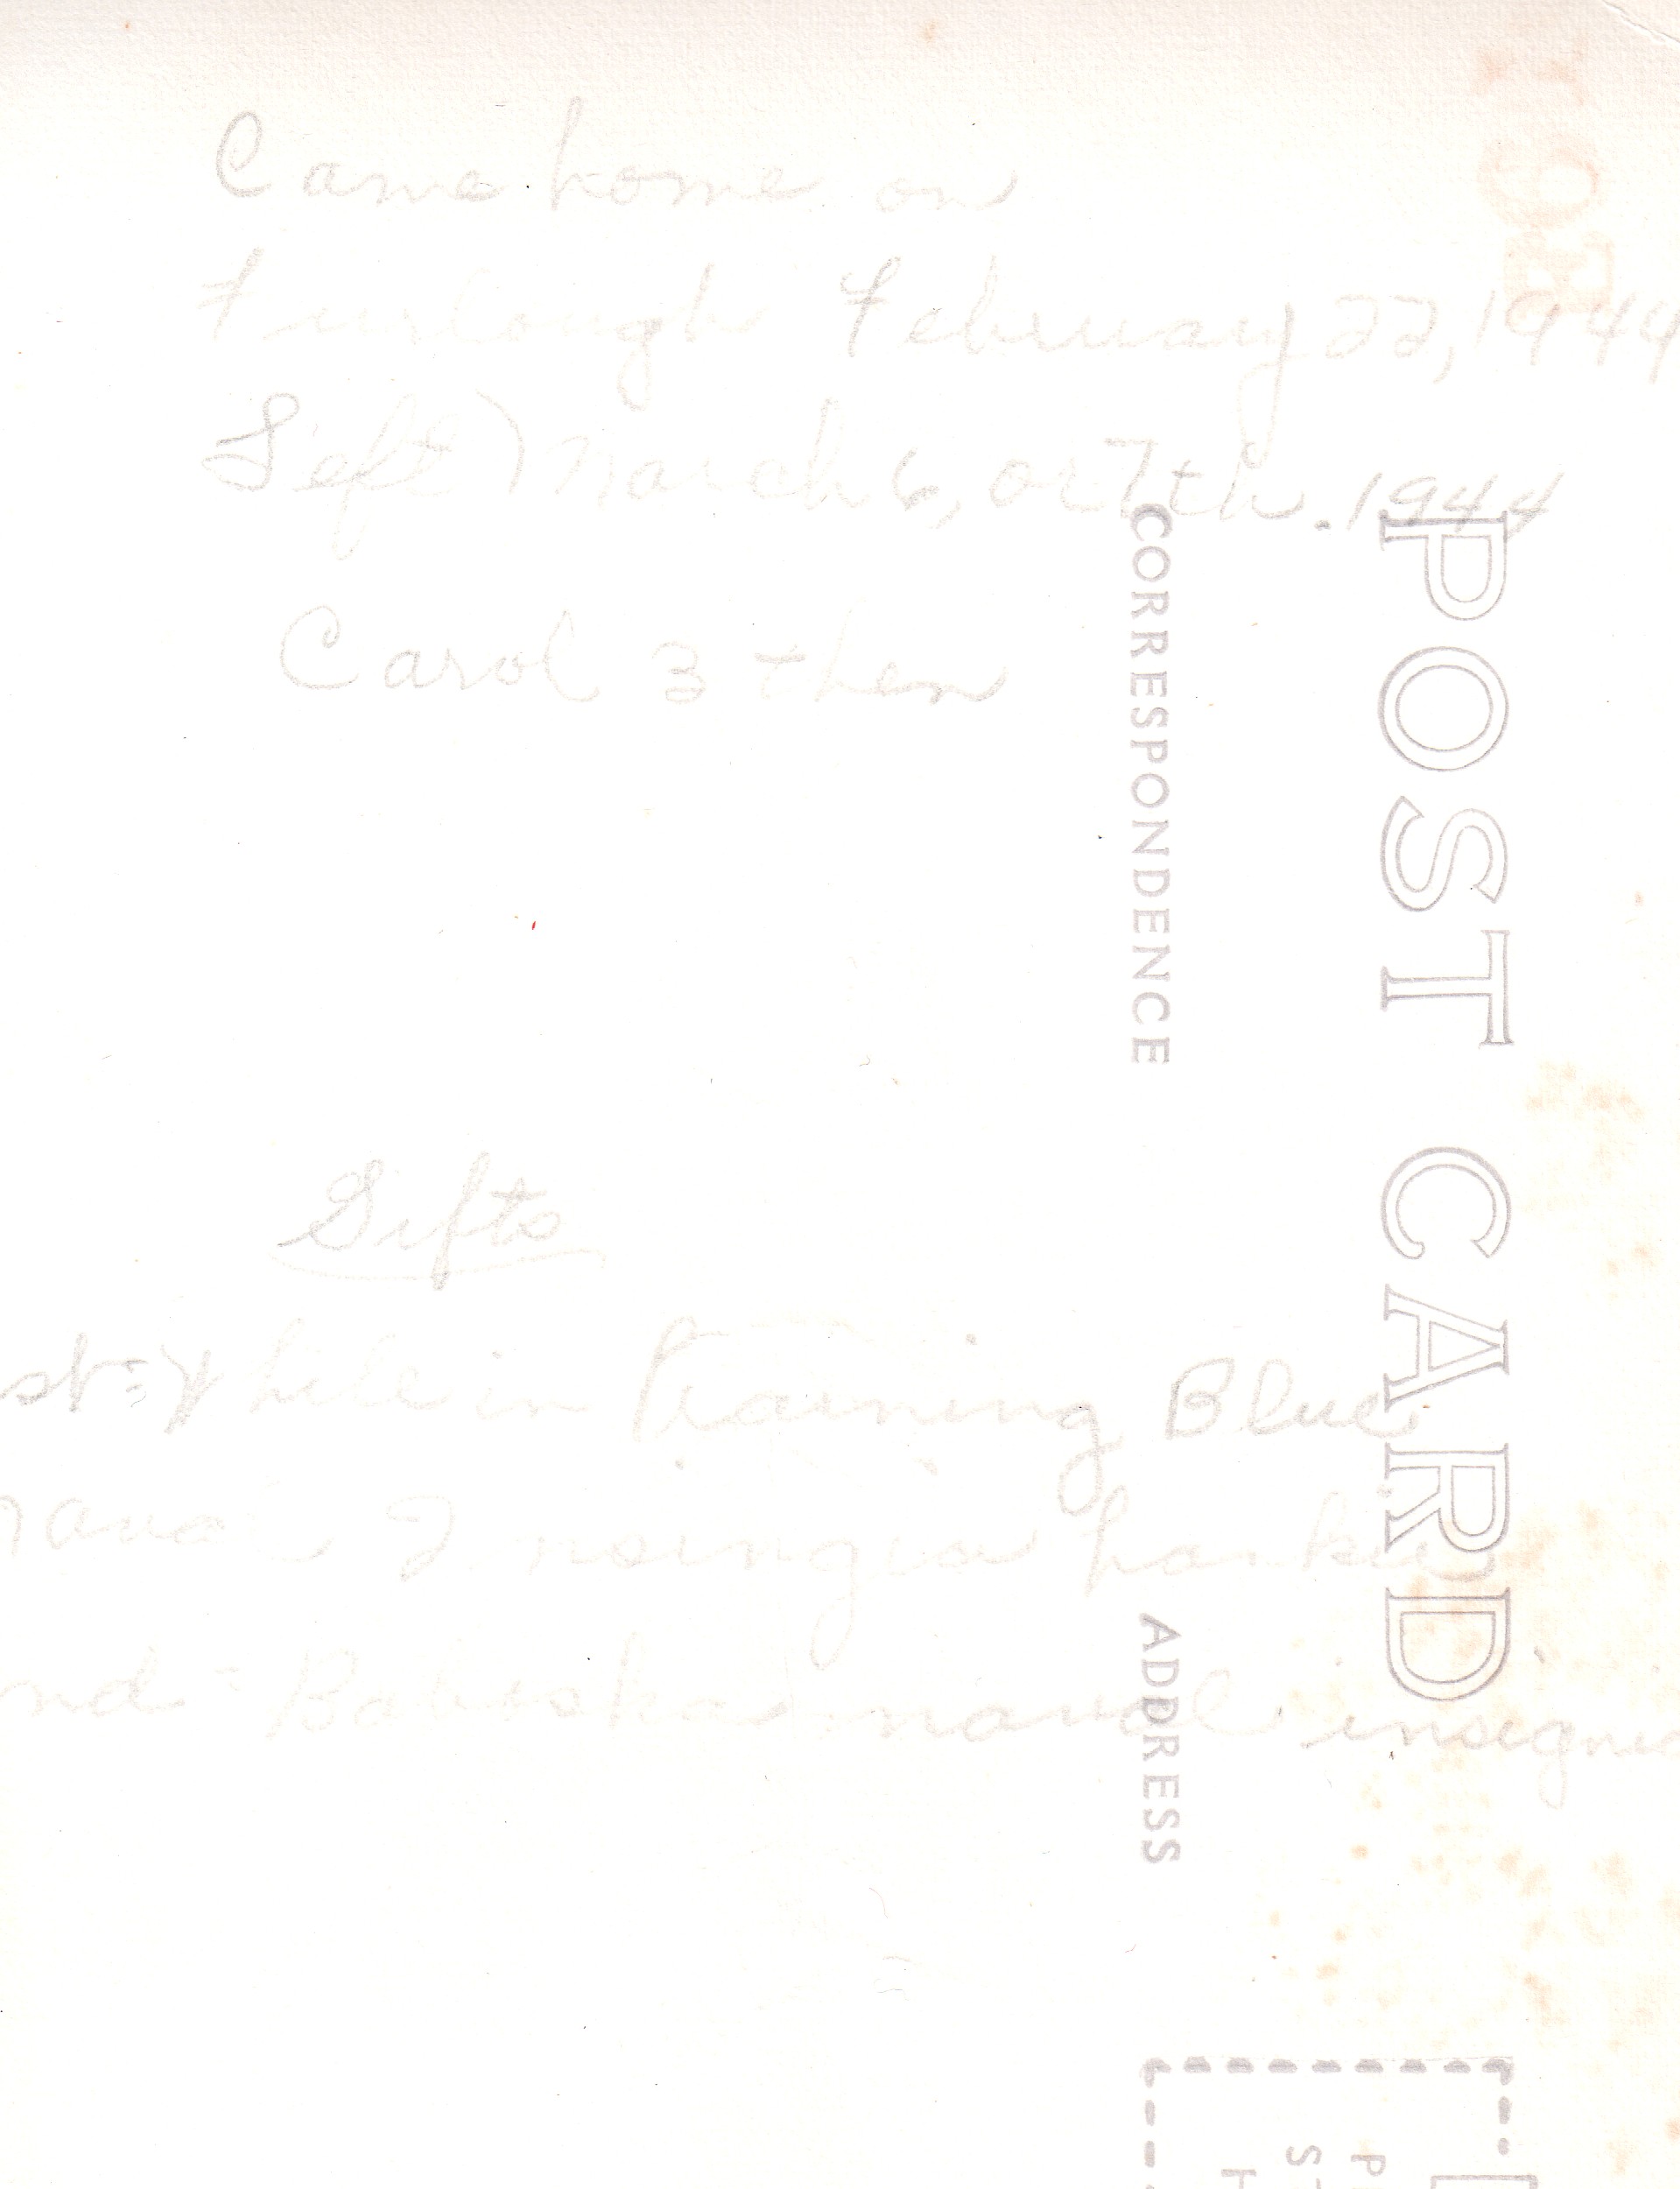 Came home on
Furlough February 22, 1944
Left March 6, or 7th. 1944
Carol 3 then
Gifts
st = While in Training Blue
Naval Insingia hankie
nd - Babushka naval insignia
POST CARD
CORRESPONDENCE
ADDRESS